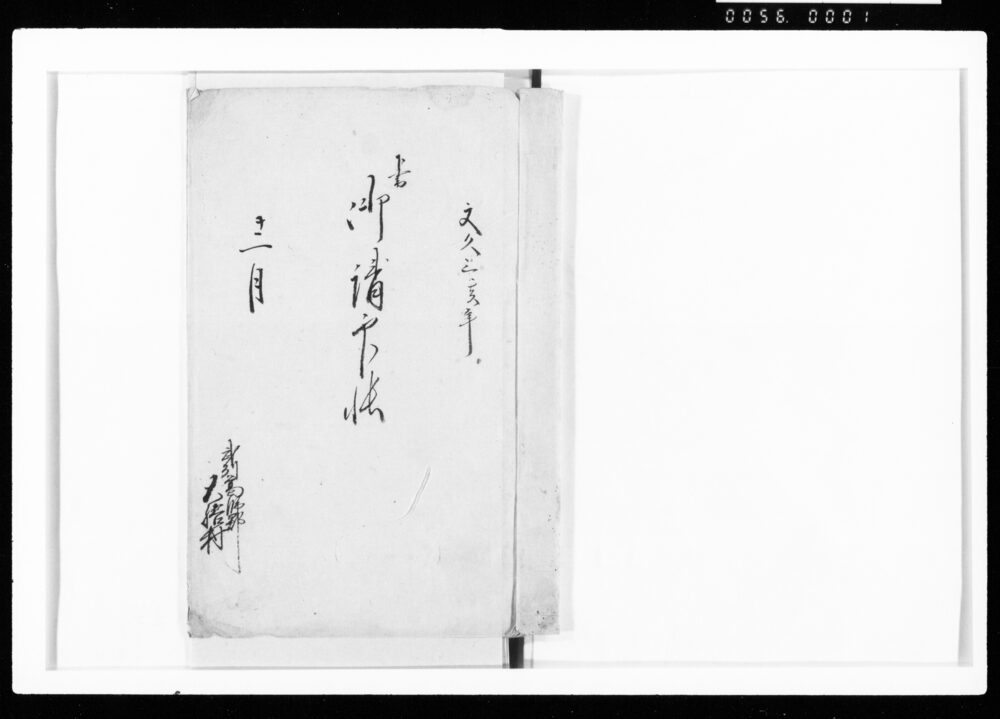 0056. 0001
文久三亥年
御請印帳
十二月
武州高麗郡
村